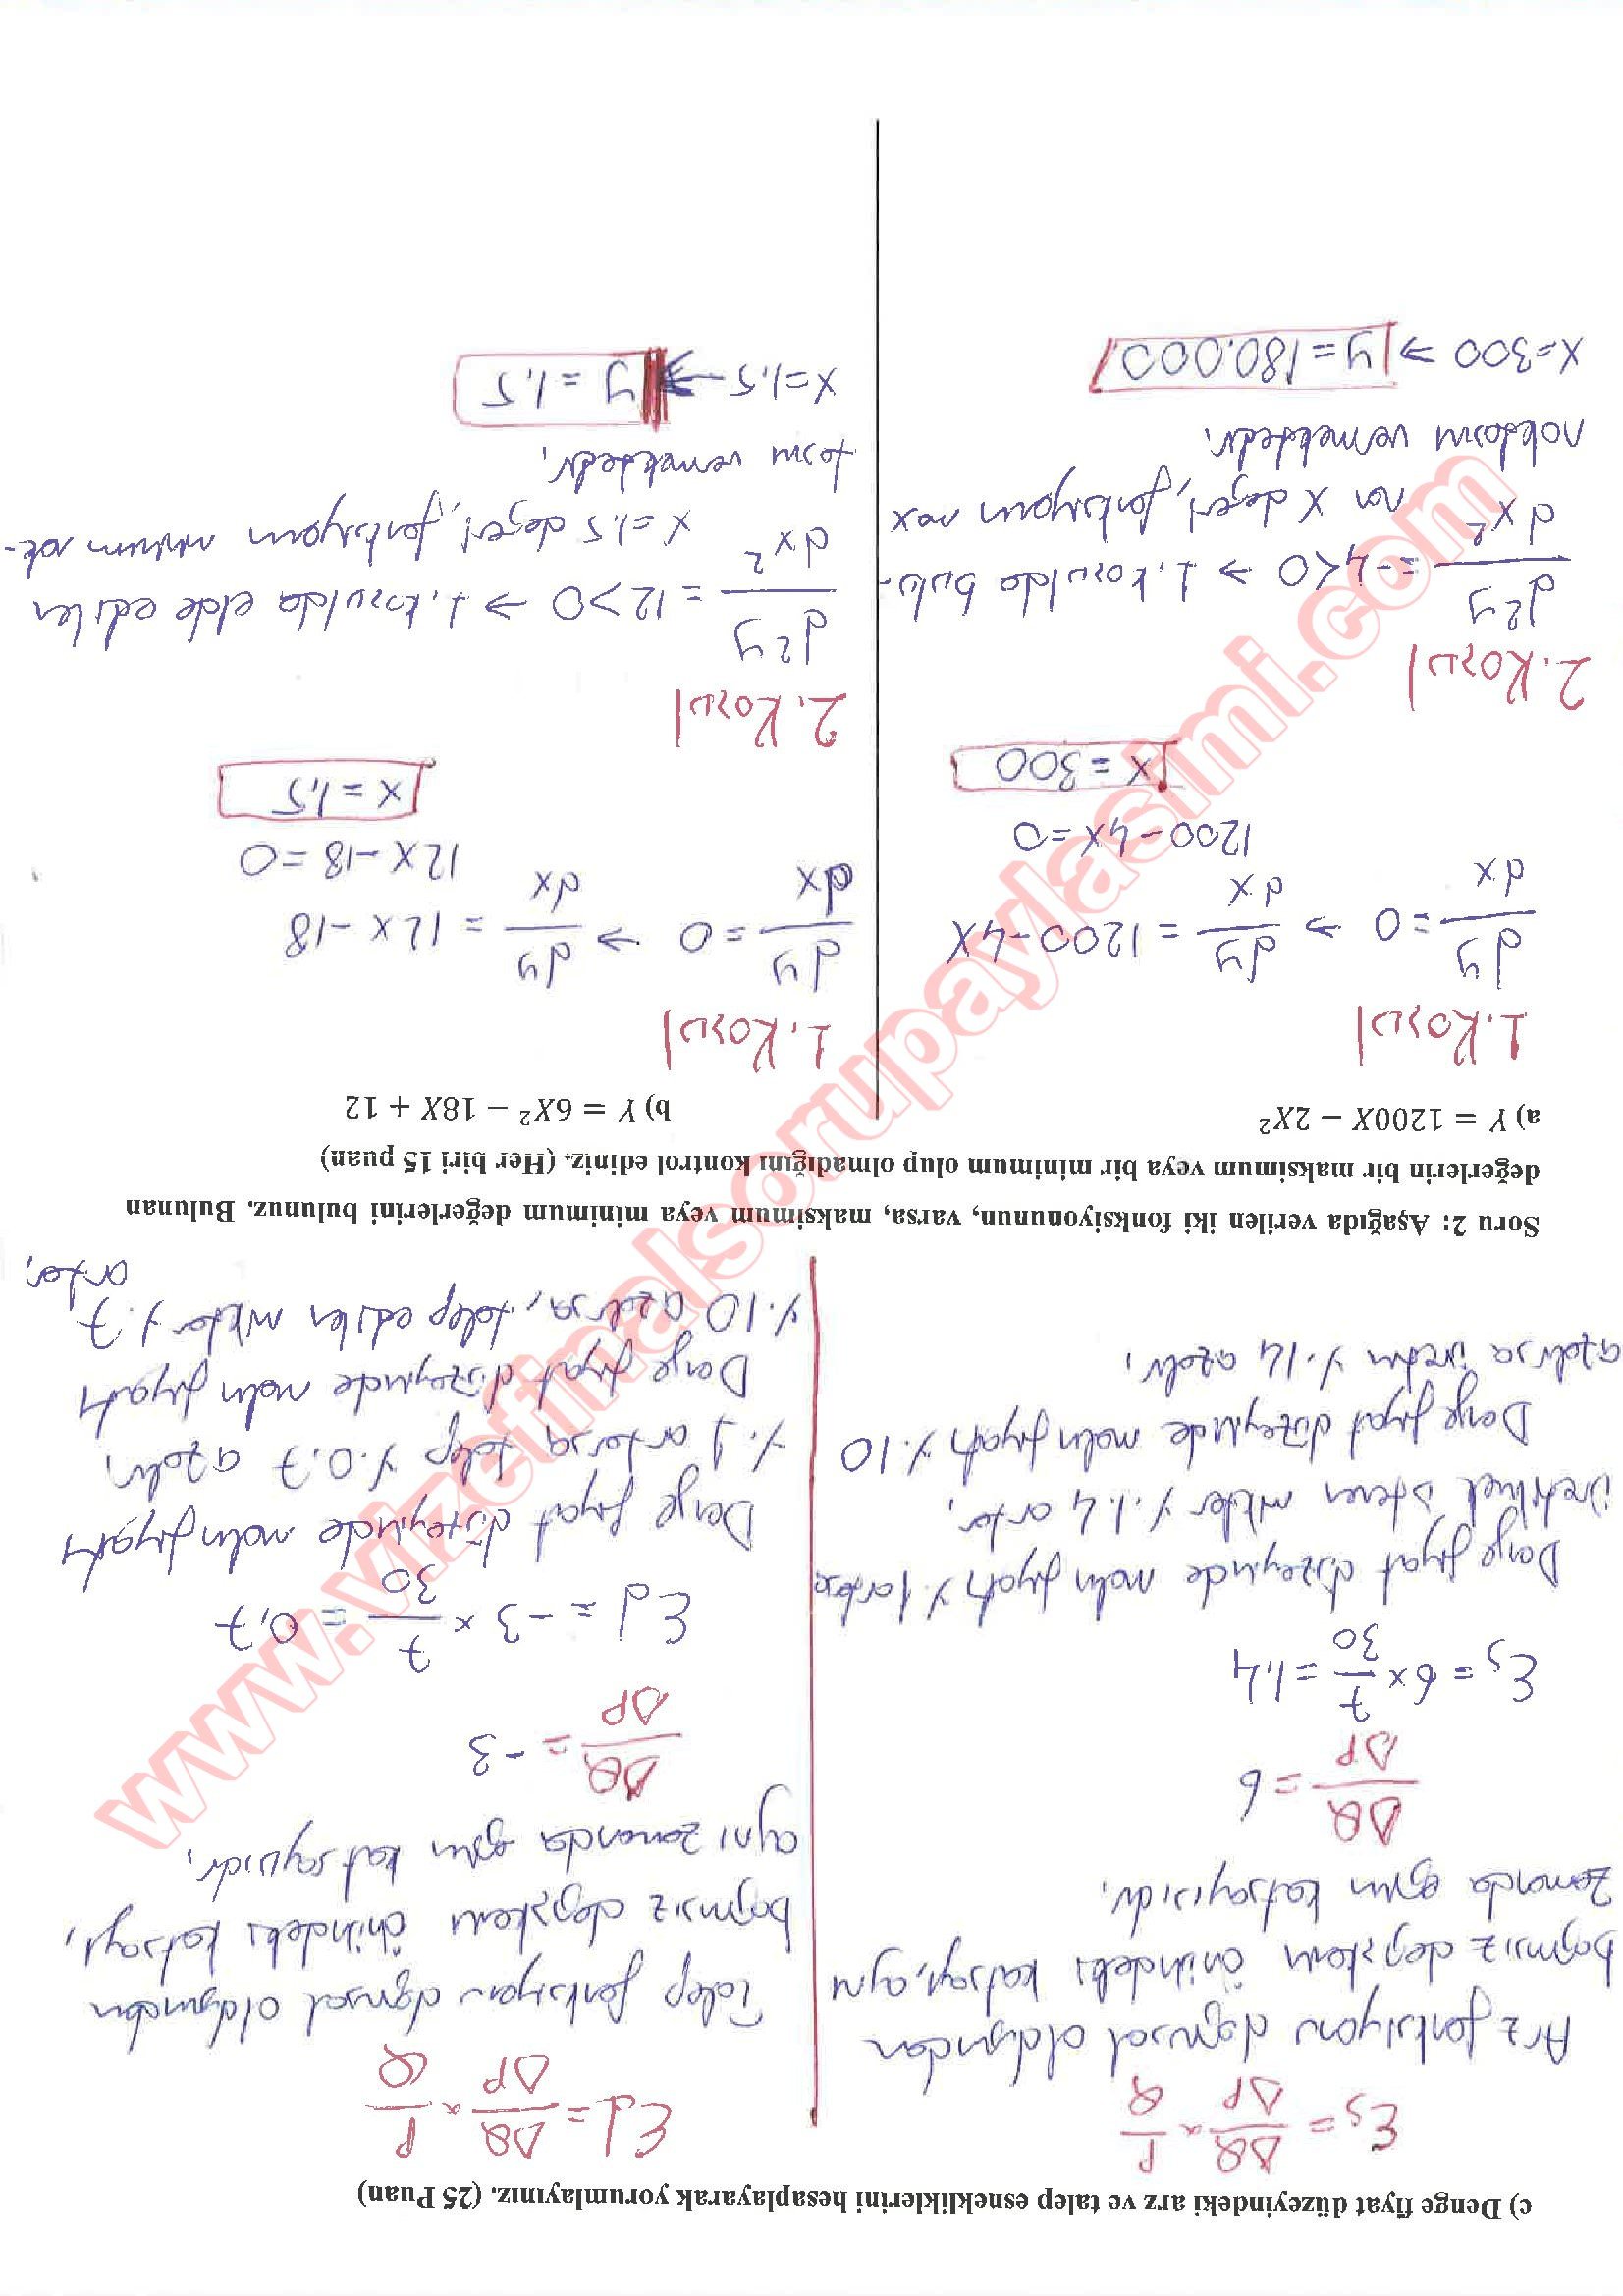 c) Denge fiyat düzeyindeki arz ve talep esnekliklerini hesaplayarak yorumlayınız. (25 Puan)
Es = ΔQ/ΔP x P/Q
Arz fonksiyonu doğrusal olduğundan
bağımsız değişkenin önündeki katsayı, aynı
zamanda eğim katsayısıdır.
ΔQ/ΔP = 6
Es = 6 x 7/30 = 1.4
Denge fiyat düzeyinde malın fiyatı %1 artarsa
üretilmek istenen miktar %1.4 artar.
Denge fiyat düzeyinde malın fiyatı %10
azalırsa üretim %14 azalır.
Ed = ΔQ/ΔP x P/Q
Talep fonksiyonu doğrusal olduğundan
bağımsız değişkenin önündeki katsayı,
aynı zamanda eğim katsayısıdır.
ΔQ/ΔP = -3
Ed = -3 x 7/30 = 0,7
Denge fiyat düzeyinde malın fiyatı
%1 artarsa talep %0.7 azalır.
Denge fiyat düzeyinde malın fiyatı
%10 azalırsa, talep edilen miktar %7
artar.
Soru 2: Aşağıda verilen iki fonksiyonunun, varsa, maksimum veya minimum değerlerini bulunuz. Bulunan
değerlerin bir maksimum veya bir minimum olup olmadığını kontrol ediniz. (Her biri 15 puan)
a) Y = 1200X − 2X²
1. Koşul
dy/dx = 0 → dy/dx = 1200-4X
1200-4X=0
X = 300
2. Koşul
d²y/dx² = -4<0 → 1. koşulda bulu-
nan X değeri, fonksiyonun max
noktasını vermektedir.
X=300 → y=180.000
b) Y = 6X² − 18X + 12
1. Koşul
dy/dx = 0 → dy/dx = 12X-18
12X-18=0
X=1,5
2. Koşul
d²y/dx² = 12>0 → 1. koşulda elde edilen
X=1,5 değeri, fonksiyonun minimum nok-
tasını vermektedir.
X=1,5 → y = 1,5
www.vizefinalsorupaylasimi.com